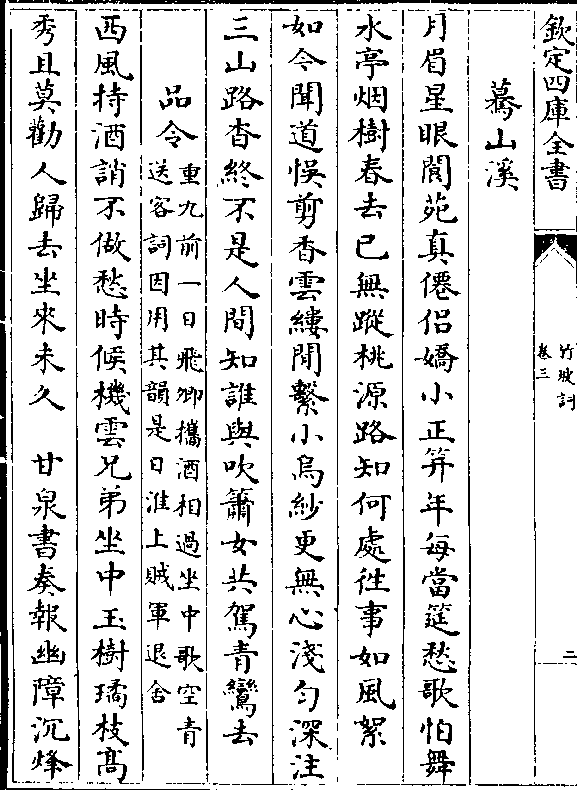 欽定四庫全書
竹坡詞
卷三
二
驀山溪
月眉星眼閬苑真僊侣嬌小正筓年每當筵愁歌怕舞
水亭烟樹春去已無蹤桃源路知何處徃事如風絮
如今聞道悞剪香雲縷閒繫小烏紗更無心淺匀深注
三山路杳終不是人間知誰與吹簫女共駕青鸞去
品令重九前一日飛卿攜酒相過坐中歌空青
送客詞因用其韻是日淮上賊軍退舍
西風持酒誚不做愁時候機雲兄弟坐中玉樹瓊枝髙
秀且莫勸人歸去坐來未久　甘泉書奏報幽障沉烽